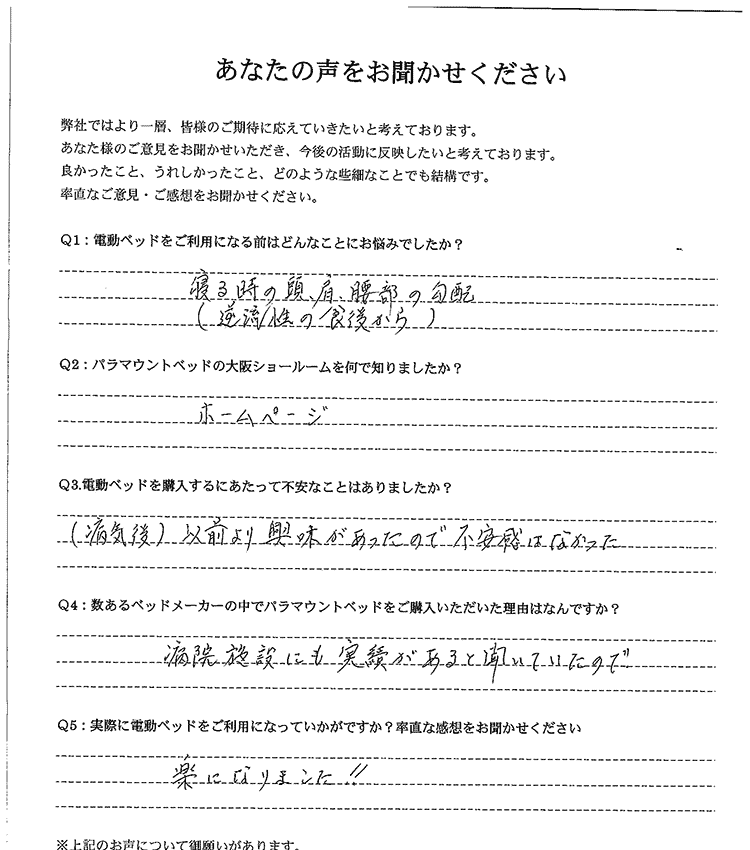 あなたの声をお聞かせください
弊社ではより一層、皆様のご期待に応えていきたいと考えております。
あなた様のご意見をお聞かせいただき、今後の活動に反映したいと考えております。
良かったこと、うれしかったこと、どのような些細なことでも結構です。
率直なご意見・ご感想をお聞かせください。
Q1：電動ベッドをご利用になる前はどんなことにお悩みでしたか？
寝る時の頭、肩、腰部の勾配
(逆流性の食後から)
Q2：パラマウントベッドの大阪ショールームを何で知りましたか？
ホームページ
Q3.電動ベッドを購入するにあたって不安なことはありましたか？
(病気後)以前より興味があったので不安感はなかった
Q4：数あるベッドメーカーの中でパラマウントベッドをご購入いただいた理由はなんですか？
病院施設にも実績があると聞いていたので
Q5：実際に電動ベッドをご利用になっていかがですか？率直な感想をお聞かせください
楽になりました!!
※上記のお声について御願いがあります。